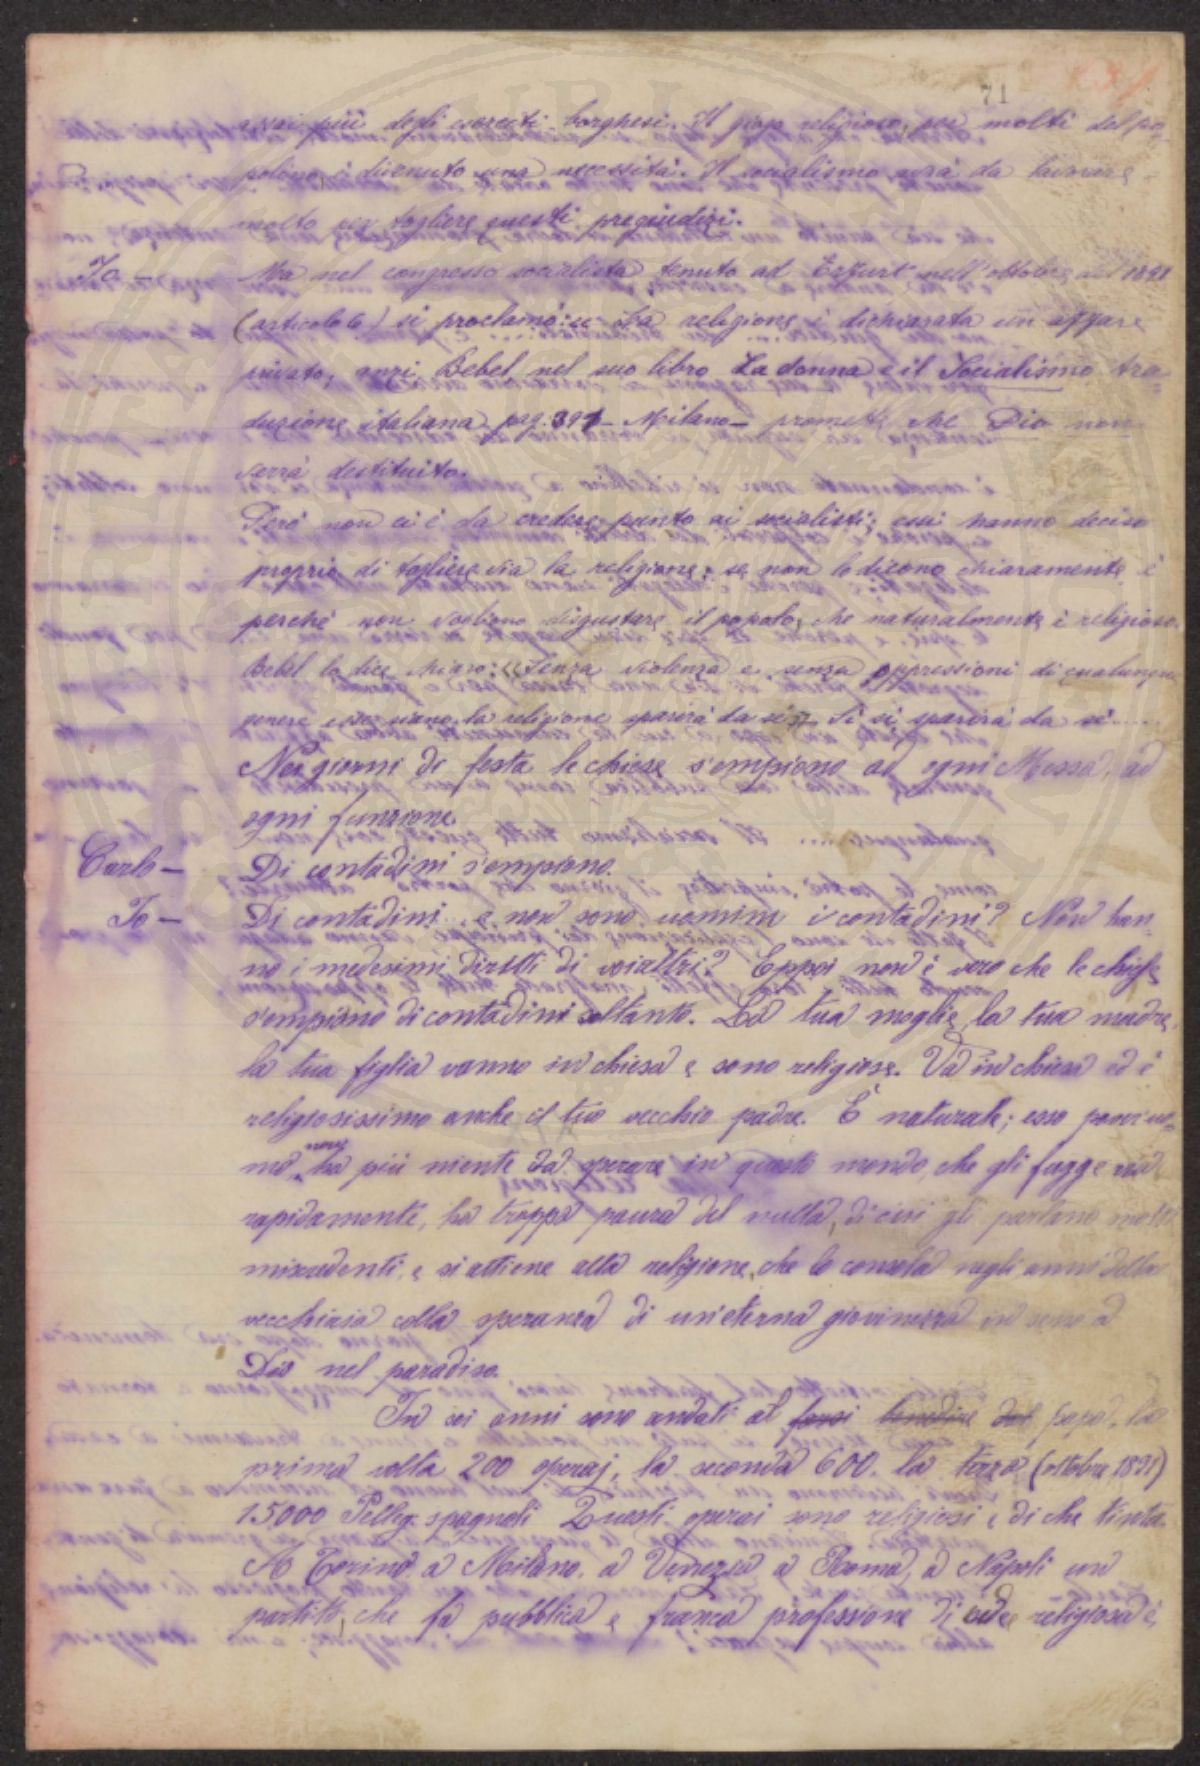 71
assai più degli eserciti borghesi. Il giogo religioso, per molti del po-
polino, è divenuto una necessità. Il socialismo avrà da lavorare
molto per togliere questi pregiudizi.
Io — Ma nel congresso socialista tenuto ad Erfurt nell'ottobre del 1891
(articolo 6) si proclamò: « La religione è dichiarata un affare
privato; anzi Bebel nel suo libro La donna e il Socialismo tra-
duzione italiana pag. 391 — Milano — promette che Dio non
sarrà destituito.
Però non ci è da credere punto ai socialisti; essi hanno deciso
proprio di togliere via la religione; se non lo dicono chiaramente è
perchè non vogliono disgustare il popolo, che naturalmente è religioso.
Bebel lo dice chiaro: « Senza violenza e senza oppressioni di qualunque
genere esse siano, la religione sparirà da sè » Sì sì sparirà da sè .....
Nei giorni di festa le chiese s'empiono ad ogni Messa, ad
ogni funzione.
Carlo — Di contadini s'empiono.
Io — Di contadini... e non sono uomini i contadini? Non han-
no i medesimi diritti di voialtri? Eppoi non è vero che le chiese
s'empiono di contadini soltanto. La tua moglie, la tua madre,
la tua figlia vanno in chiesa e sono religiose. Va in chiesa ed è
religiosissimo anche il tuo vecchio padre. È naturale; esso pover uo-
mo non ha più niente da sperare in questo mondo, che gli fugge via
rapidamente, ha troppa paura del nulla, di cui gli parlano molti
miscredenti, e si attiene alla religione, che lo consola negli anni della
vecchiaia colla speranza di un'eterna giovinezza in seno a
Dio nel paradiso.
In sei anni sono andati al farsi benedire dal papa, la
prima volta 200 operaj, la seconda 600. la terza (ottobre 1891)
15000 Pelleg. spagnoli Questi operai sono religiosi e di che tinta.
A Torino, a Milano, a Venezia, a Roma, a Napoli un
partito, che fa pubblica e franca professione di religiosa è